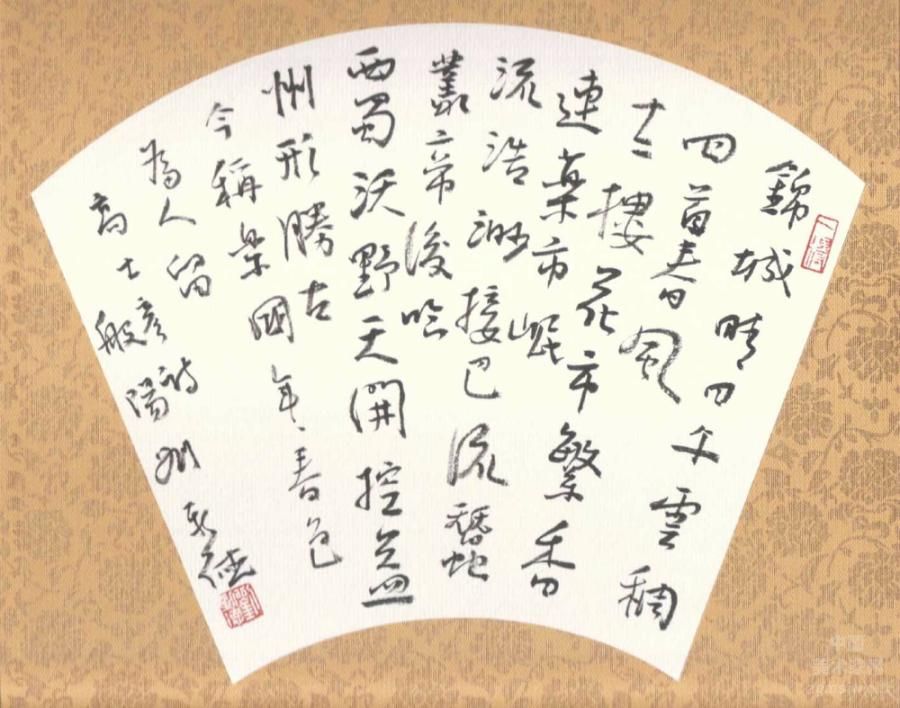 錦城晴日文雲稠
回首春風
十二樓花市繁香
連藥市岷
流浩渺接巴流蠶
叢帝後
西蜀沃野天開控益
州形勝古
今稱樂國年年春色
為人留
高士彥詩
般陽